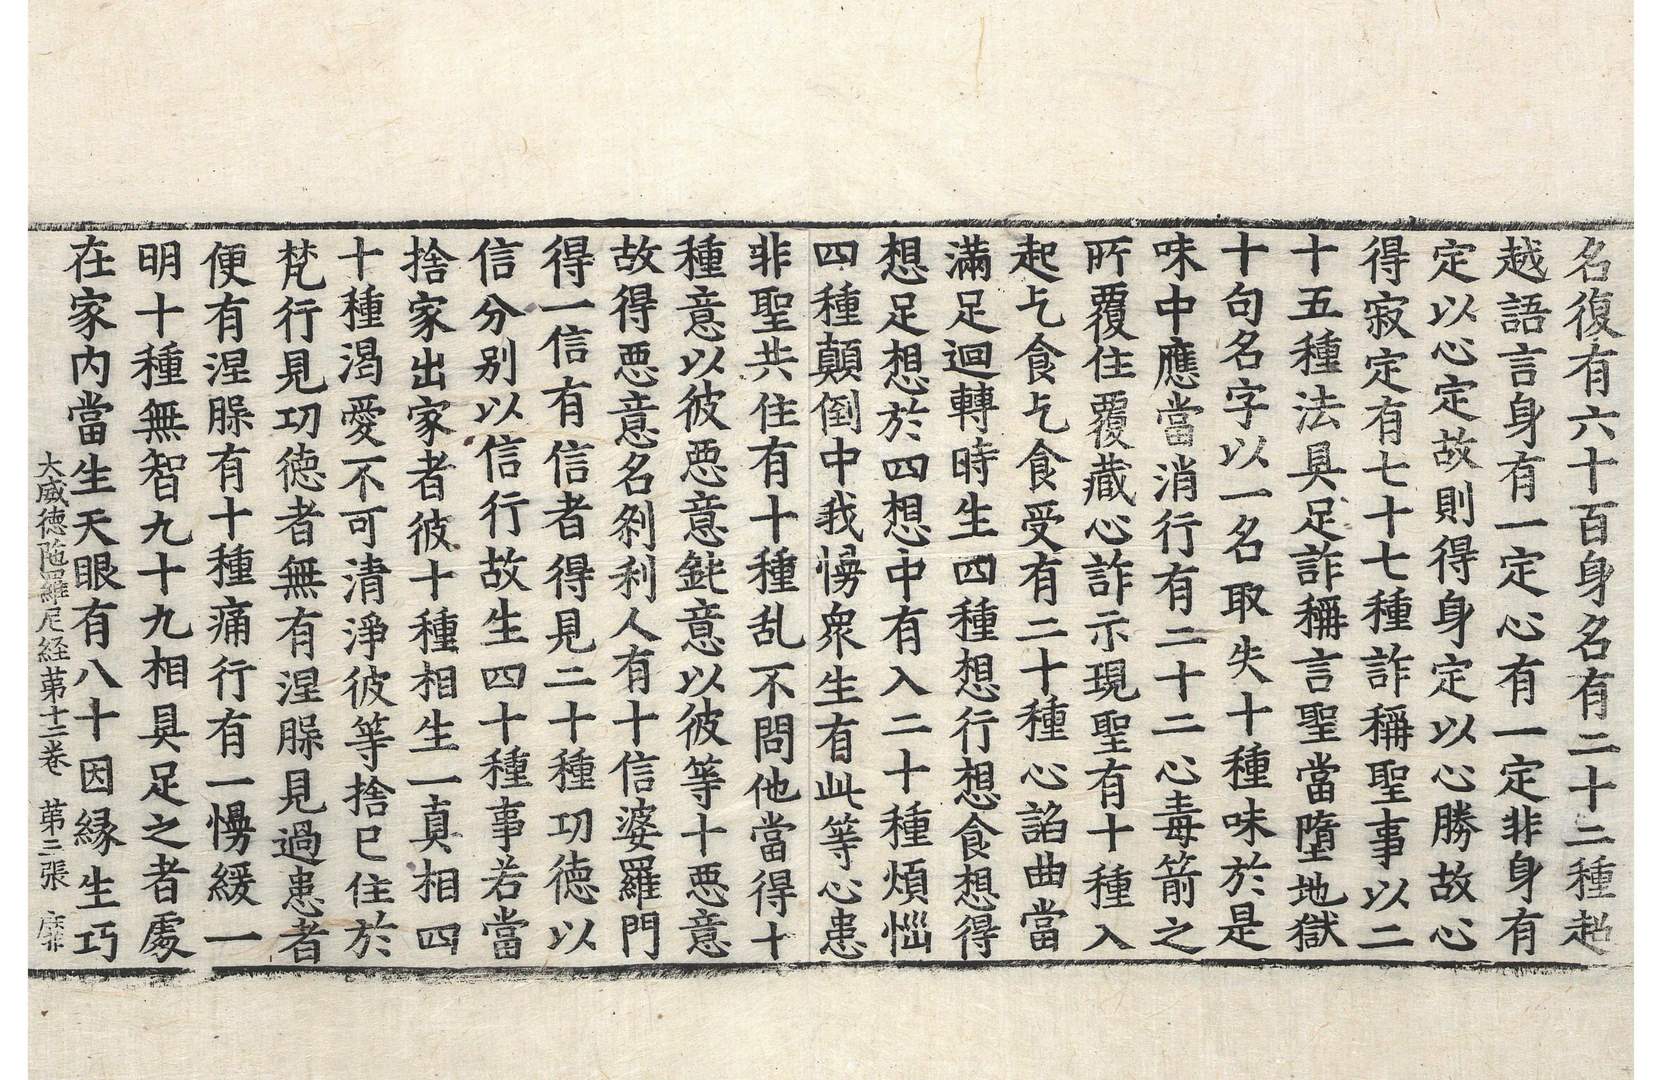 名復有六十百身名有二十二種超
越語言身有一定心有一定非身有
定以心定故則得身定以心勝故心
得寂定有七十七種詐稱聖事以二
十五種法具足詐稱言聖當墮地獄
十句名字以一名取失十種味於是
味中應當消行有二十二心毒箭之
所覆住覆藏心詐示現聖有十種入
起乞食乞食受有二十種心諂曲當
滿足迴轉時生四種想行想食想得
想足想於四想中有入二十種煩惱
四種顛倒中我慢衆生有此等心患
非聖共住有十種乱不問他當得十
種意以彼惡意鈍意以彼等十惡意
故得惡意名剝利人有十信婆羅門
得一信有信者得見二十種功德以
信分別以信行故生四十種事若當
捨家出家者彼十種相生一真相四
十種渴愛不可清淨彼等捨已住於
梵行見功德者無有涅臊見過患者
便有涅臊有十種痛行有一慢緩一
明十種無智九十九相具足之者處
在家内當生天眼有八十因縁生巧
大威德陁羅尼経苐十二卷 苐二張 靡